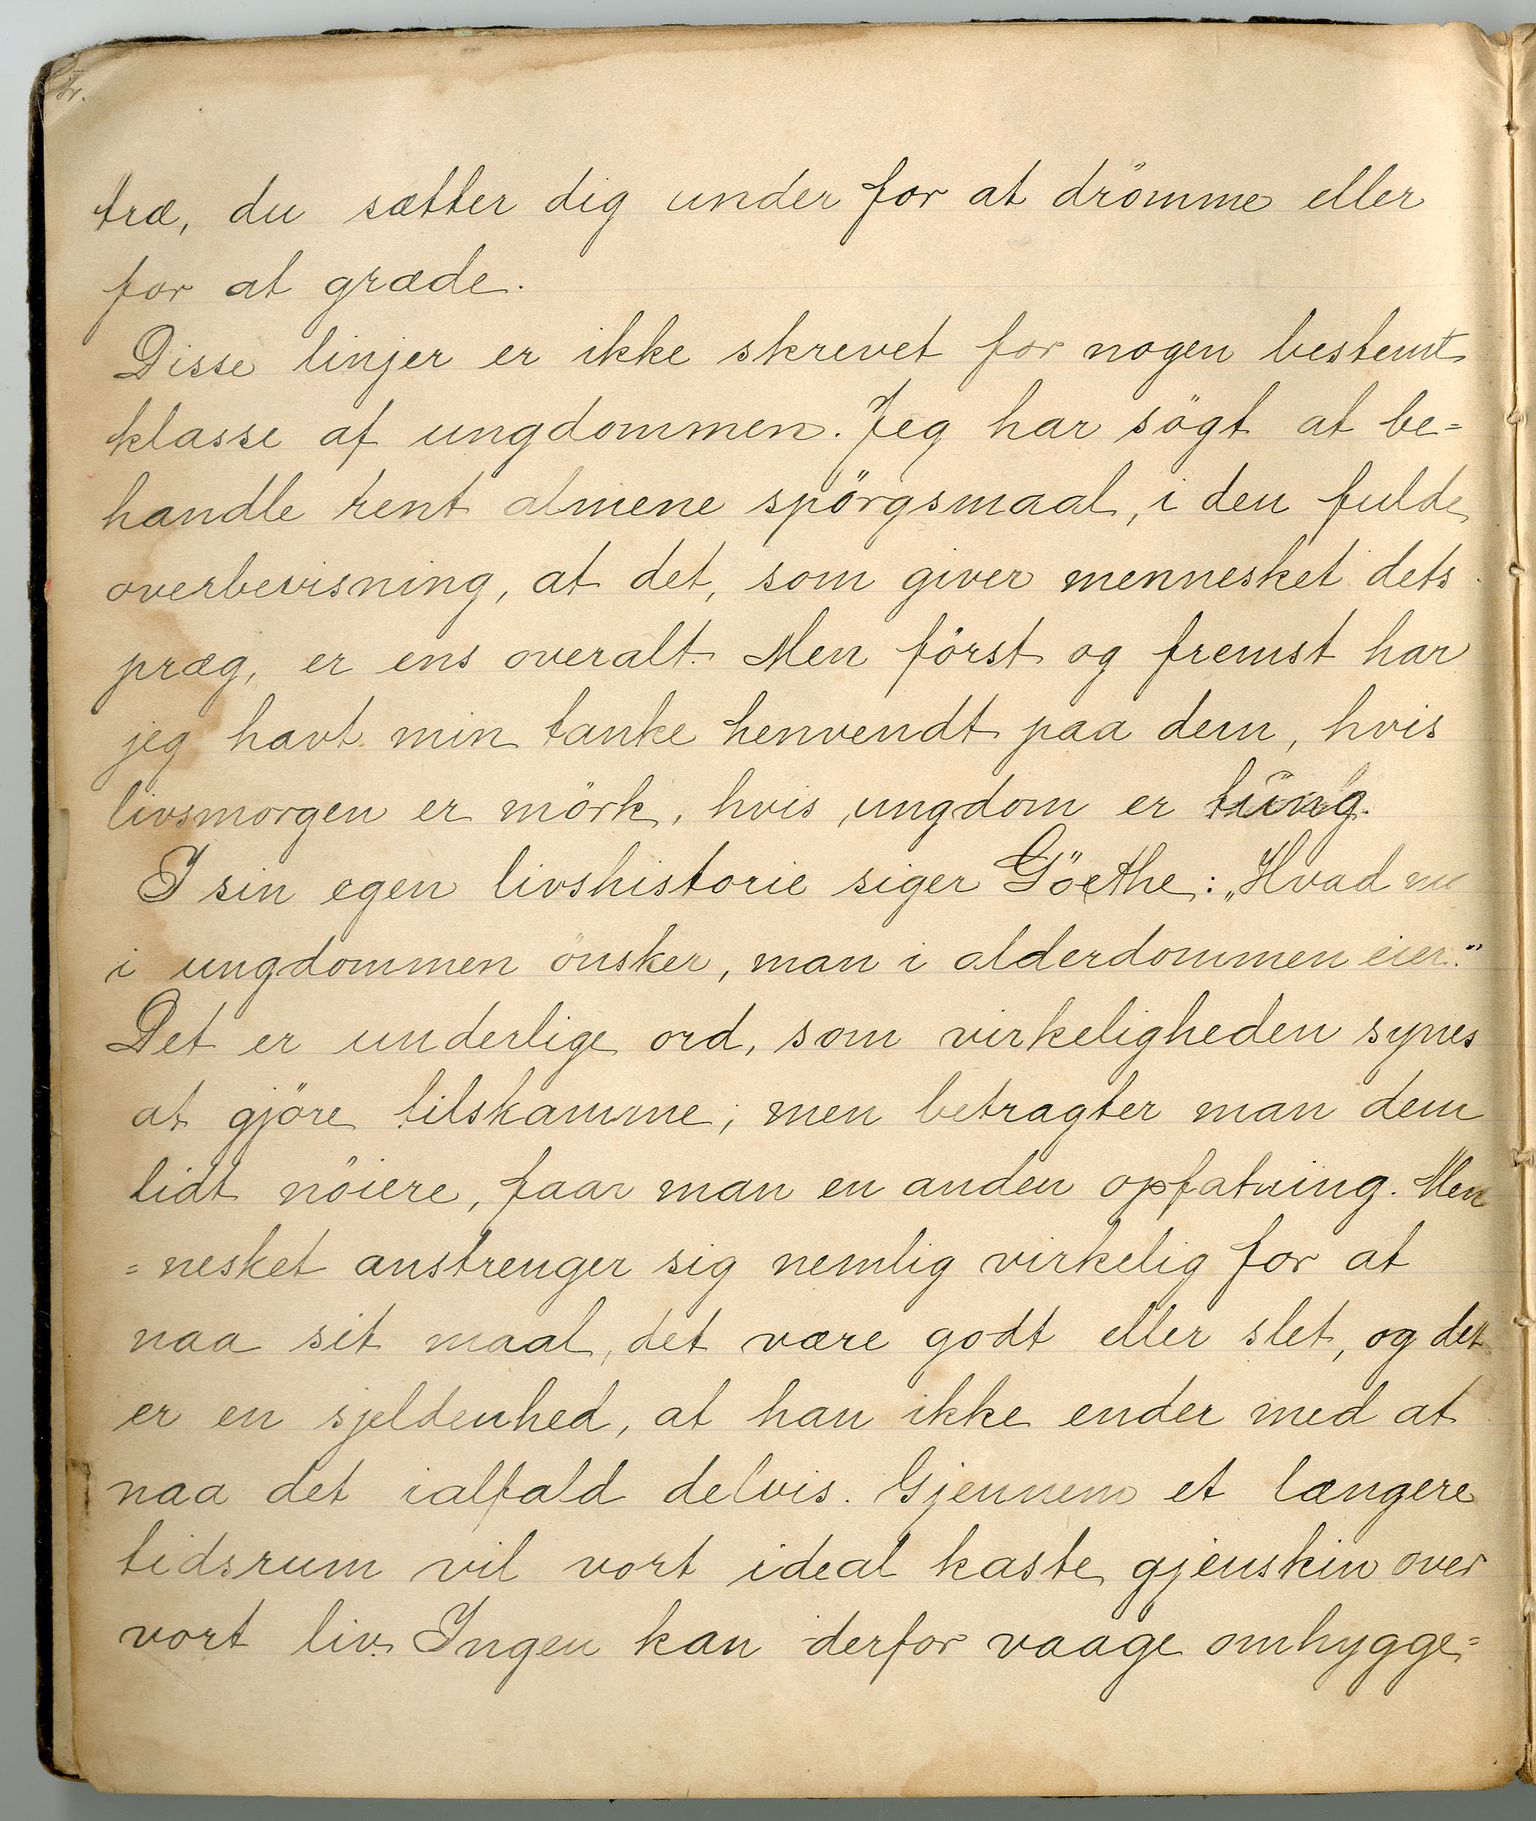 træ, du sætter dig under for at drömme eller
for at græde.
Disse linjer er ikke skrevet for nogen bestemt
klasse af ungdommen. Jeg har sögt at be=
handle rent almene spörgsmaal, i den fulde
overbevisning, at det, som giver mennesket dets
præg, er ens overalt. Men först og fremst har
jeg havt min tanke henvendt paa dem, hvis
livsmorgen er mörk, hvis ungdom er tung.
I sin egen livshistorie siger Göethe: „Hvad
i ungdommen önsker, man i alderdommen eier."
Det er underlige ord, som virkeligheden synes
at gjöre tilskamme; men betragter man dem
lidt nöiere, faar man en anden opfatning. Men
=nesket anstrenger sig nemlig virkelig for at
naa sit maal, det være godt eller slet, og det
er en sjeldenhed, at han ikke ender med at
naa det ialfald delvis. Gjennem et længere
tidsrum vil vort ideal kaste gjenskin over
vort liv. Ingen kan derfor vaage omhygge=